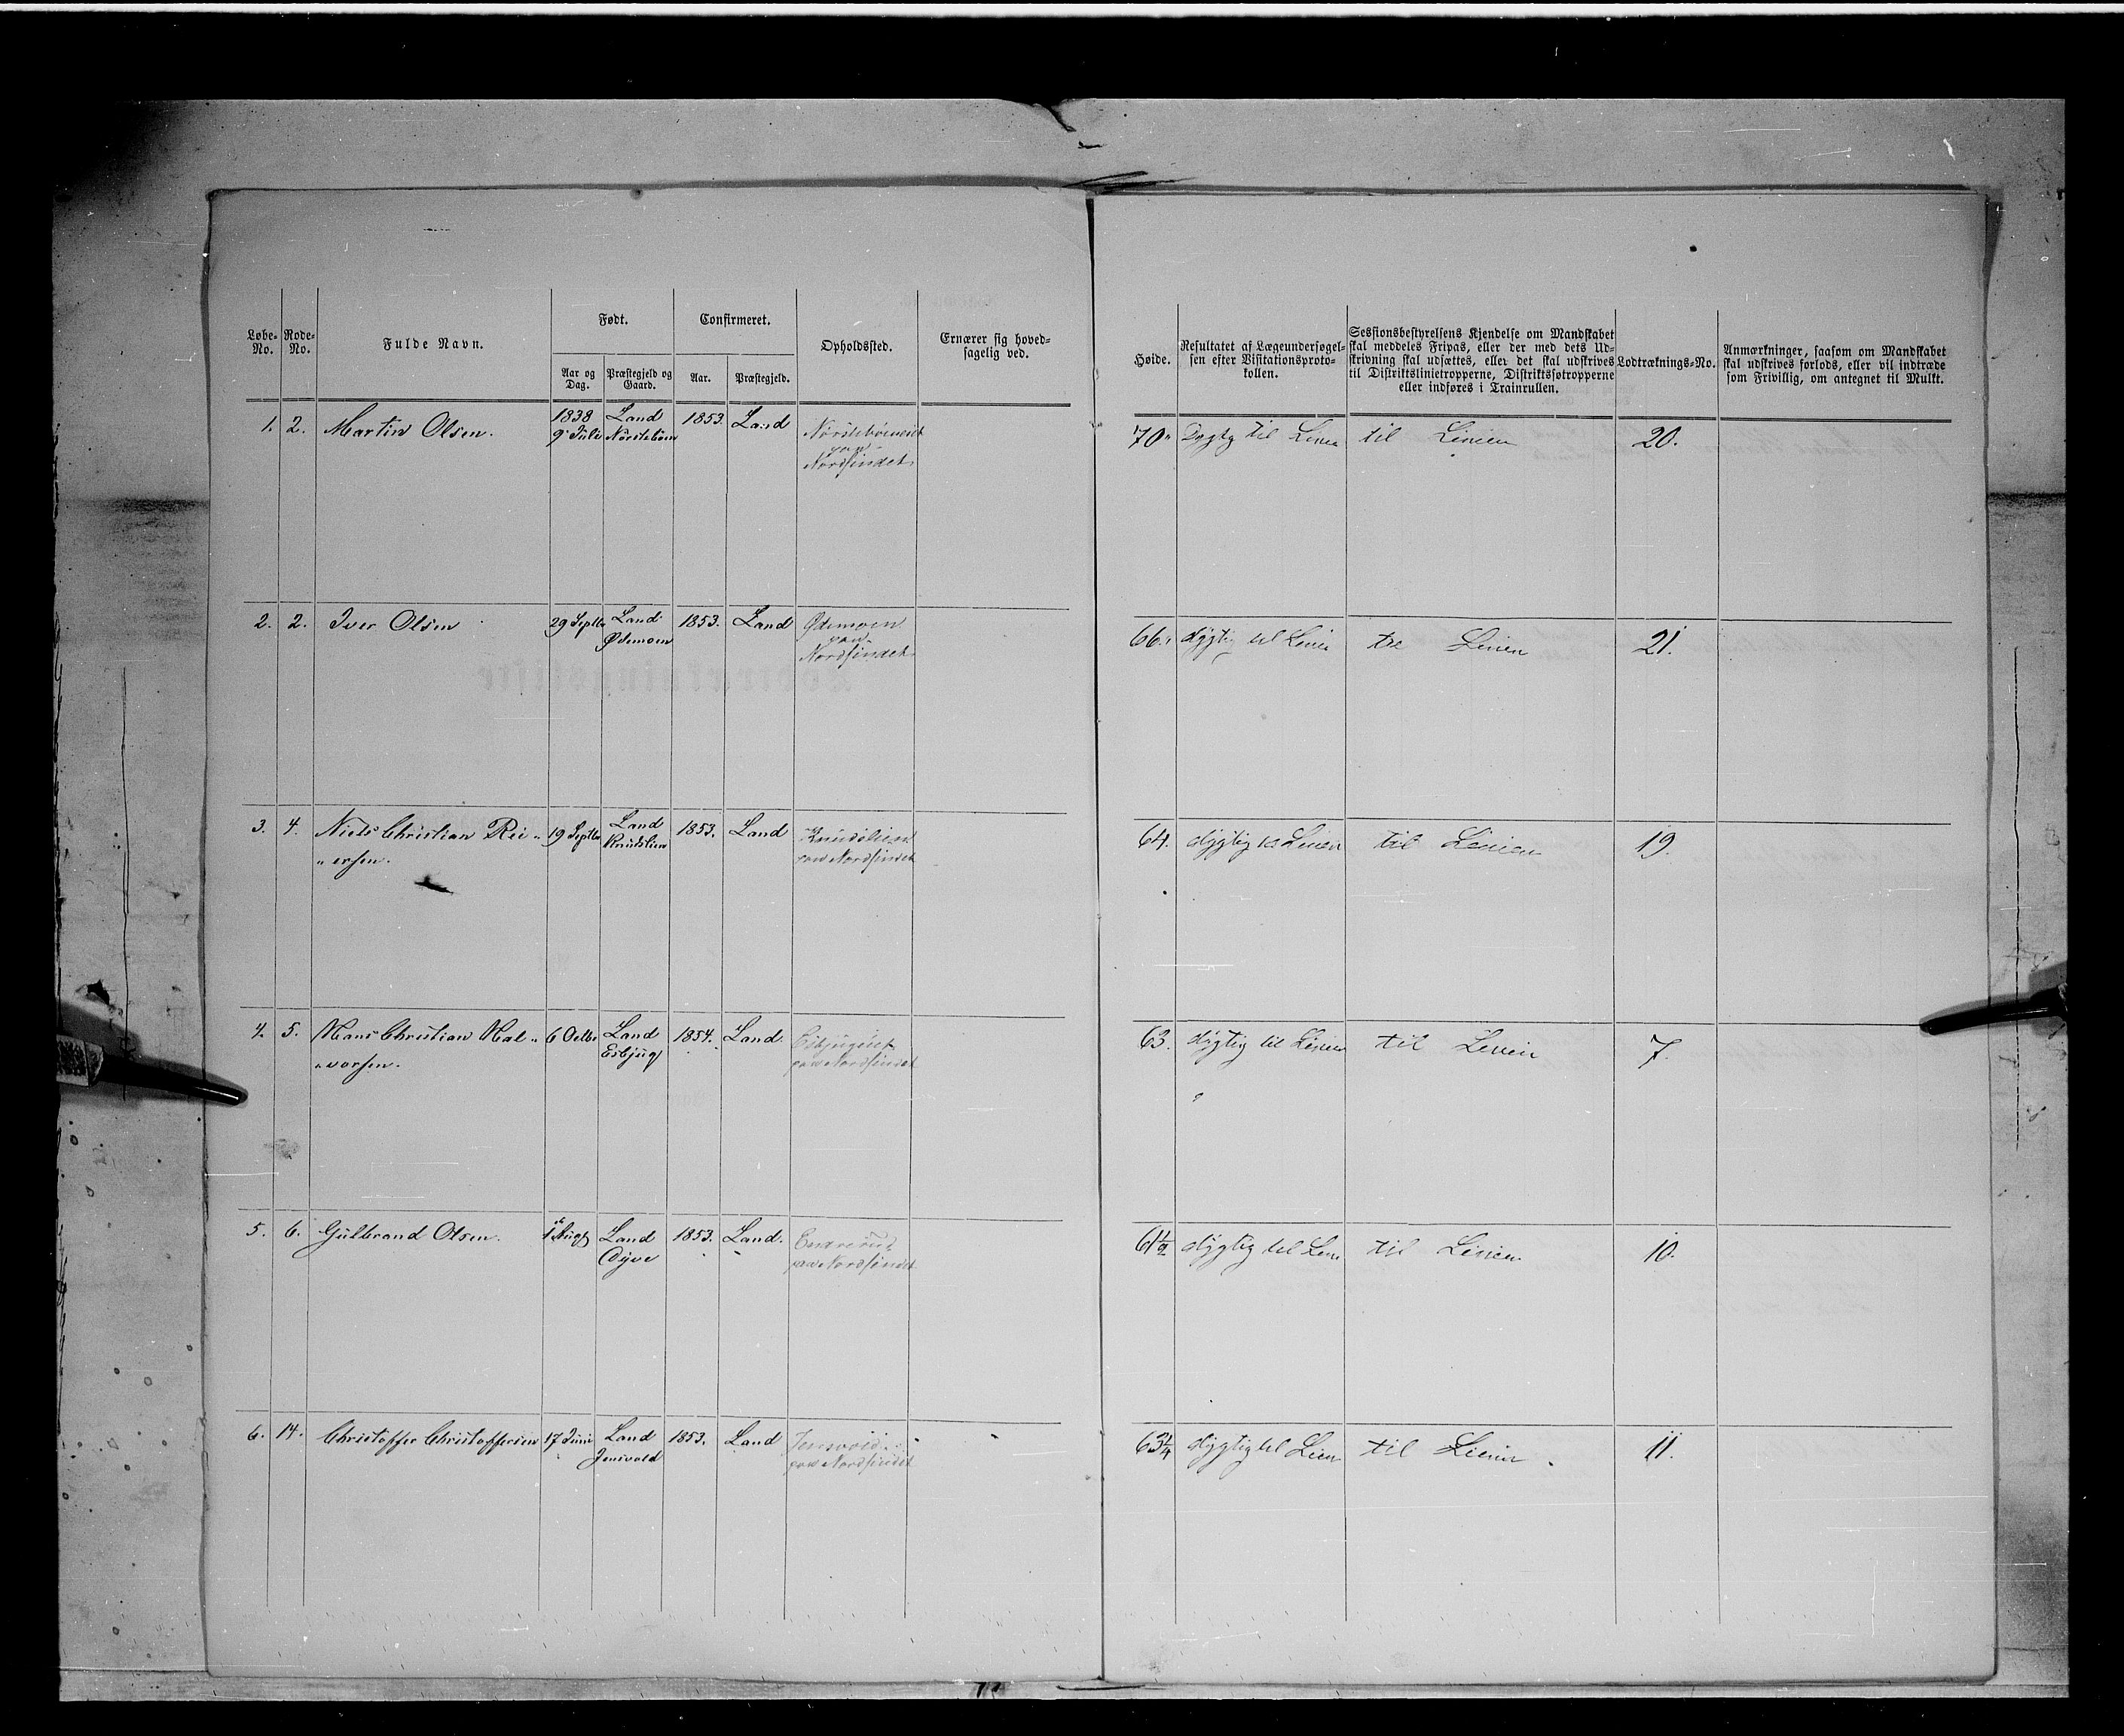 Løbe-No.
Rode-No.
Fulde Navn.
Født.
Aar og Dag.
Præstegjeld og Gaard.
Confirmeret.
Aar.
Præstegjeld.
Opholdssted.
Ernærer sig hoved-
sagelig ved.
Høide.
Resultatet af Lægeundersøgel-
sen efter Visitationsproto-
kollen.
Sessionsbestyrelsens Kjendelse om Mandskabet
skal meddeles Fripas, eller der med dets Ud-
skrivning skal udsættes, eller det skal udskrives
til Distriktslinietropperne, Distriktsfotropperne
eller indføres i Trainrullen.
Lodtræknings-No.
Anmærkninger, saasom om Mandskabet
skal udskrives forlods, eller vil indtræde
som Frivillig, om antegnet til Mulkt.
1. 2. Martin Olsen. 1838 Land 1853. Land 70" Dygtig til Linien til Linien 20.
9 Juli
paa
Nordsindet
2. 2. Iver Olsen 29 Septbr Land 1853. Land Ødemoen 66" dygtig til Linien til Linien 21.
Ødemoen paa
Nordsindet
3. 4. Niels Christian Rei" 19 Septbr Land 1853. Land Knudslien 64. dygtig til Linien til Linien 19.
"ersen. Knudslien paa Nordsindet
4. 5. Hans Christian Hal" 6 Octbr Land 1854. Land. 63. dygtig til Linien til Linien 7.
"vorsen. Esbjug paa Nordsindet
5. 6. Gulbrand Olsen. 1 Augt Land 1853. Land. 61½ dygtig til Linien til Linien 10.
paa Nordsindet
6. 14. Christoffer Christoffersen 17 Juni Land 1853. Land Jensvold 63¾ dygtig til Linien til Linien. 11.
Jensvold paa Nordsindet